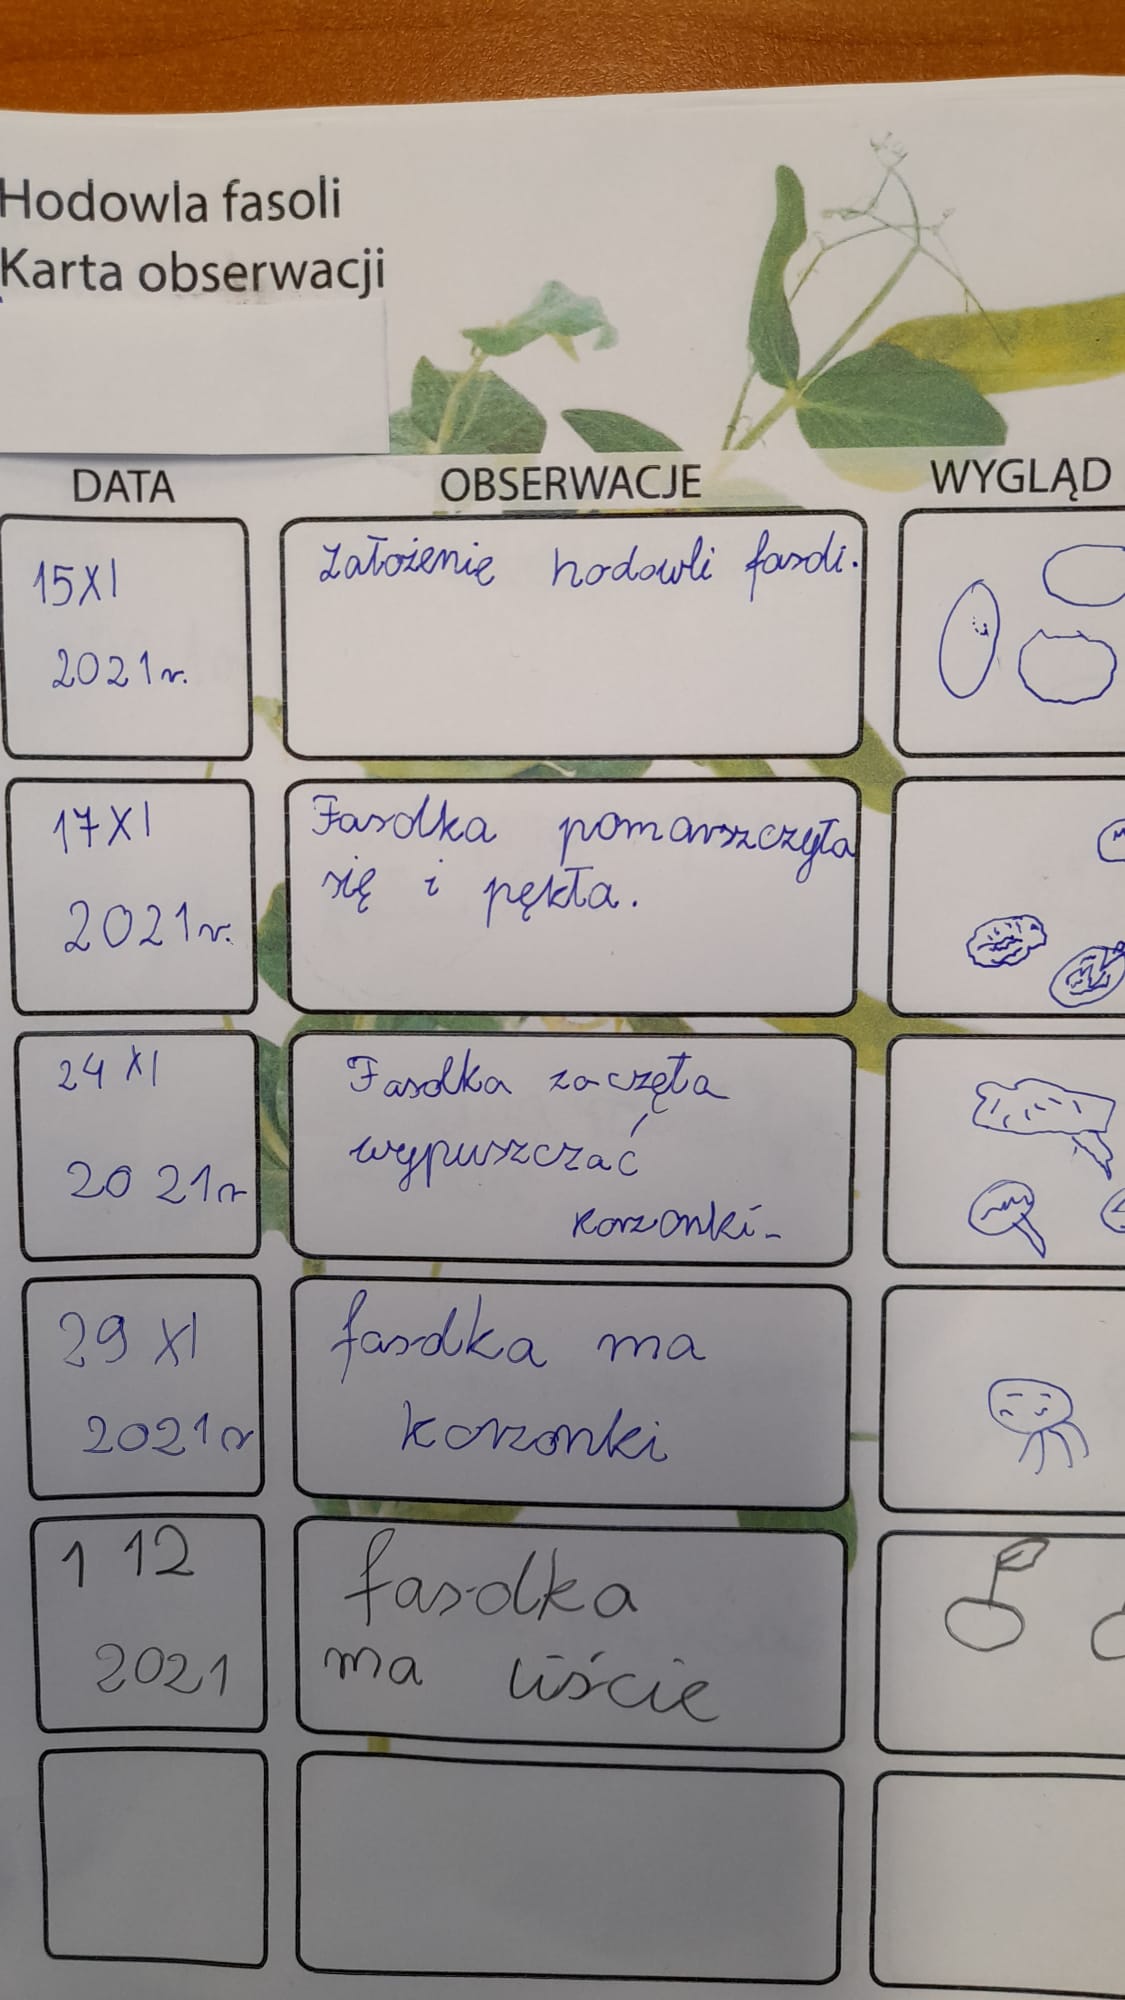 Hodowla fasoli
Karta obserwacji
DATA OBSERWACJE WYGLĄD
15 XI
2021 r.
Założenie hodowli fasoli.
17 XI
2021 r.
Fasolka pomarszczyła
się i pękła.
24 XI
2021 r
Fasolka zaczęła
wypuszczać
korzonki.
29 XI
2021 r
fasolka ma
korzonki
1 12
2021
fasolka
ma liście